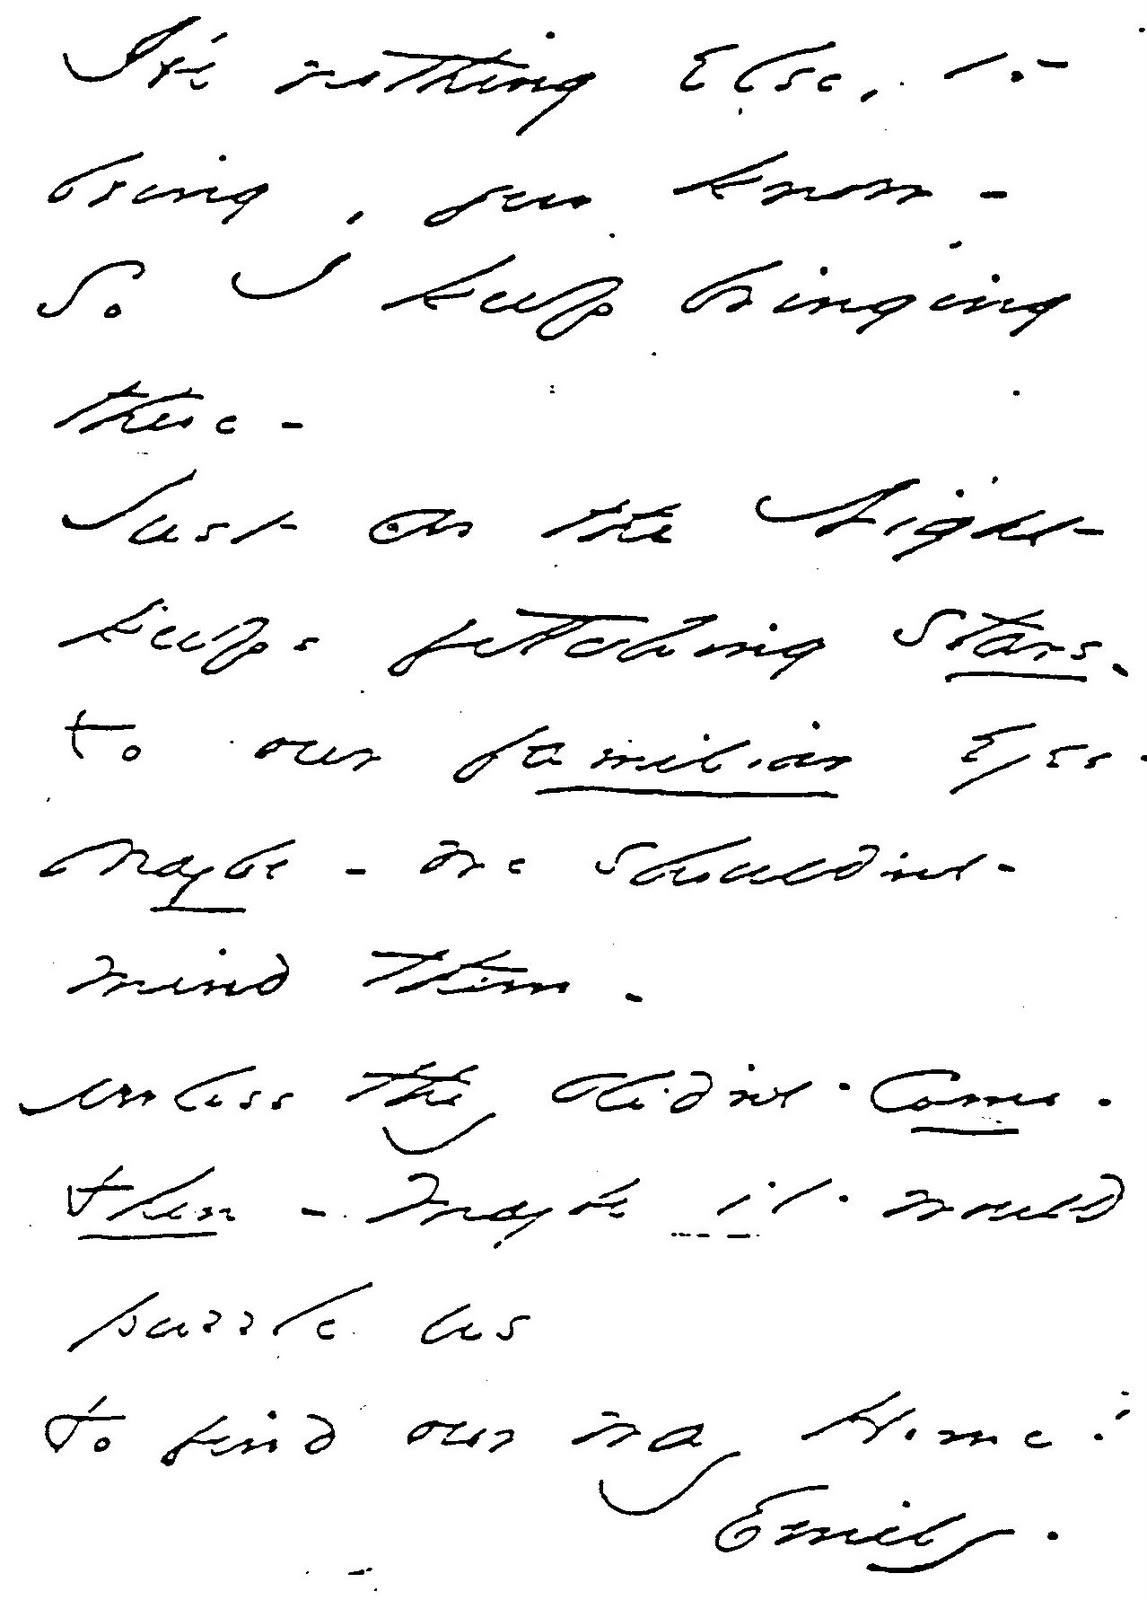 I've nothing Else, to
bring, you know -
So I keep bringing
these -
Just as the Night
keeps fetching Stars.
to our familiar Eyes -
Maybe - we shouldn't
mind them -
unless they didn't come -
then - maybe it would
puzzle us
to find our way Home!
Emily.